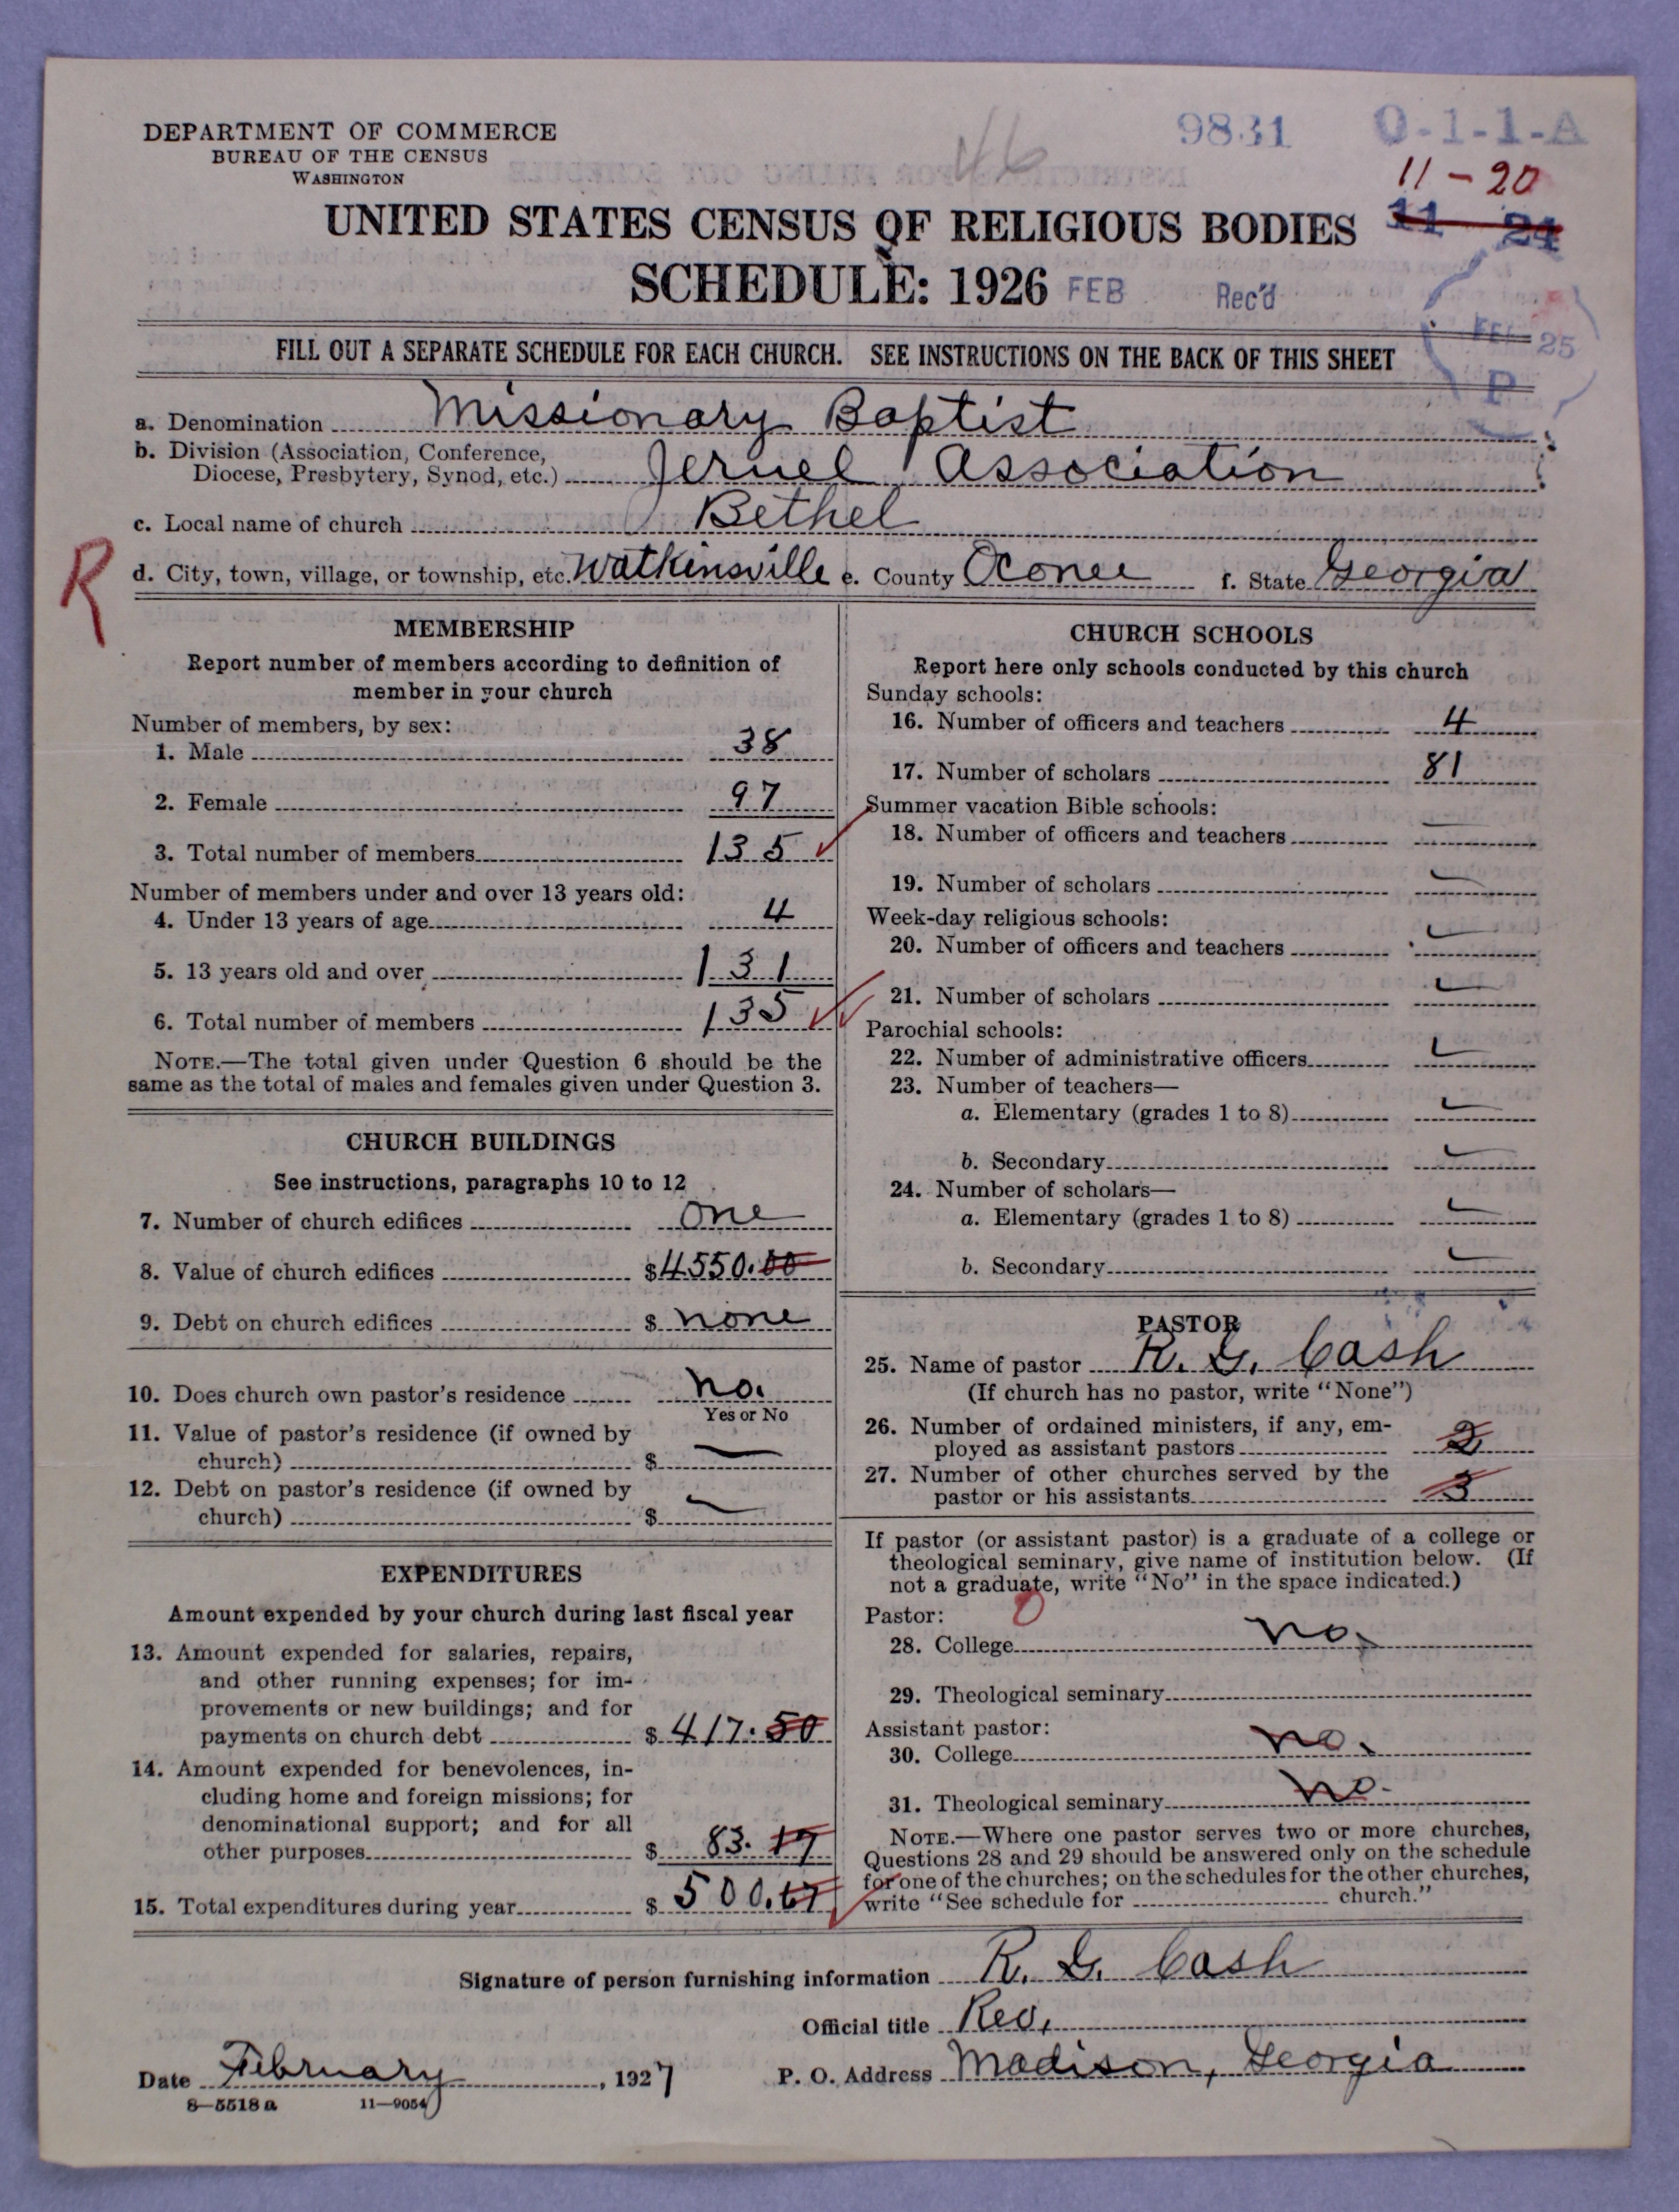 DEPARTMENT OF COMMERCE
BUREAU OF THE CENSUS
WASHINGTON
46
9831
0-1-1-A
11-20
11 24
UNITED STATES CENSUS OF RELIGIOUS BODIES
SCHEDULE: 1926
FEB Rec'd
FEB 25
P
FILL OUT A SEPARATE SCHEDULE FOR EACH CHURCH. SEE INSTRUCTIONS ON THE BACK OF THIS SHEET
a. Denomination Missionary Baptist
b. Division (Association, Conference,
Diocese, Presbytery, Synod, etc.) Jeruel Association
c. Local name of church Bethel
R
d. City, town, village, or township, etc. Watkinsville e. County Oconee f. State Georgia
MEMBERSHIP
Report number of members according to definition of
member in your church
Number of members, by sex:
1. Male 38
2. Female 97
3. Total number of members 135
Number of members under and over 13 years old:
4. Under 13 years of age 4
5. 13 years old and over 131
6. Total number of members 135
NOTE.—The total given under Question 6 should be the
same as the total of males and females given under Question 3.
CHURCH BUILDINGS
See instructions, paragraphs 10 to 12
7. Number of church edifices one
8. Value of church edifices $4550.00
9. Debt on church edifices $ none
10. Does church own pastor's residence no.
Yes or No
11. Value of pastor's residence (if owned by
church) $ —
12. Debt on pastor's residence (if owned by
church) $ —
EXPENDITURES
Amount expended by your church during last fiscal year
13. Amount expended for salaries, repairs,
and other running expenses; for im-
provements or new buildings; and for
payments on church debt $ 417.50
14. Amount expended for benevolences, in-
cluding home and foreign missions; for
denominational support; and for all
other purposes $ 83.17
15. Total expenditures during year $ 500.67
CHURCH SCHOOLS
Report here only schools conducted by this church
Sunday schools:
16. Number of officers and teachers 4
17. Number of scholars 81
Summer vacation Bible schools:
18. Number of officers and teachers —
19. Number of scholars —
Week-day religious schools:
20. Number of officers and teachers —
21. Number of scholars —
Parochial schools:
22. Number of administrative officers —
23. Number of teachers—
a. Elementary (grades 1 to 8) —
b. Secondary —
24. Number of scholars—
a. Elementary (grades 1 to 8) —
b. Secondary —
PASTOR
25. Name of pastor R. G. Cash
(If church has no pastor, write "None")
26. Number of ordained ministers, if any, em-
ployed as assistant pastors 2
27. Number of other churches served by the
pastor or his assistants 3
If pastor (or assistant pastor) is a graduate of a college or
theological seminary, give name of institution below. (If
not a graduate, write "No" in the space indicated.)
0
Pastor:
28. College no.
29. Theological seminary
Assistant pastor:
30. College no.
31. Theological seminary no.
NOTE.—Where one pastor serves two or more churches,
Questions 28 and 29 should be answered only on the schedule
for one of the churches; on the schedules for the other churches,
write "See schedule for church."
Signature of person furnishing information R. G. Cash
Official title Rev.
Date February, 1927
P. O. Address Madison, Georgia
8—5518a 11—9054